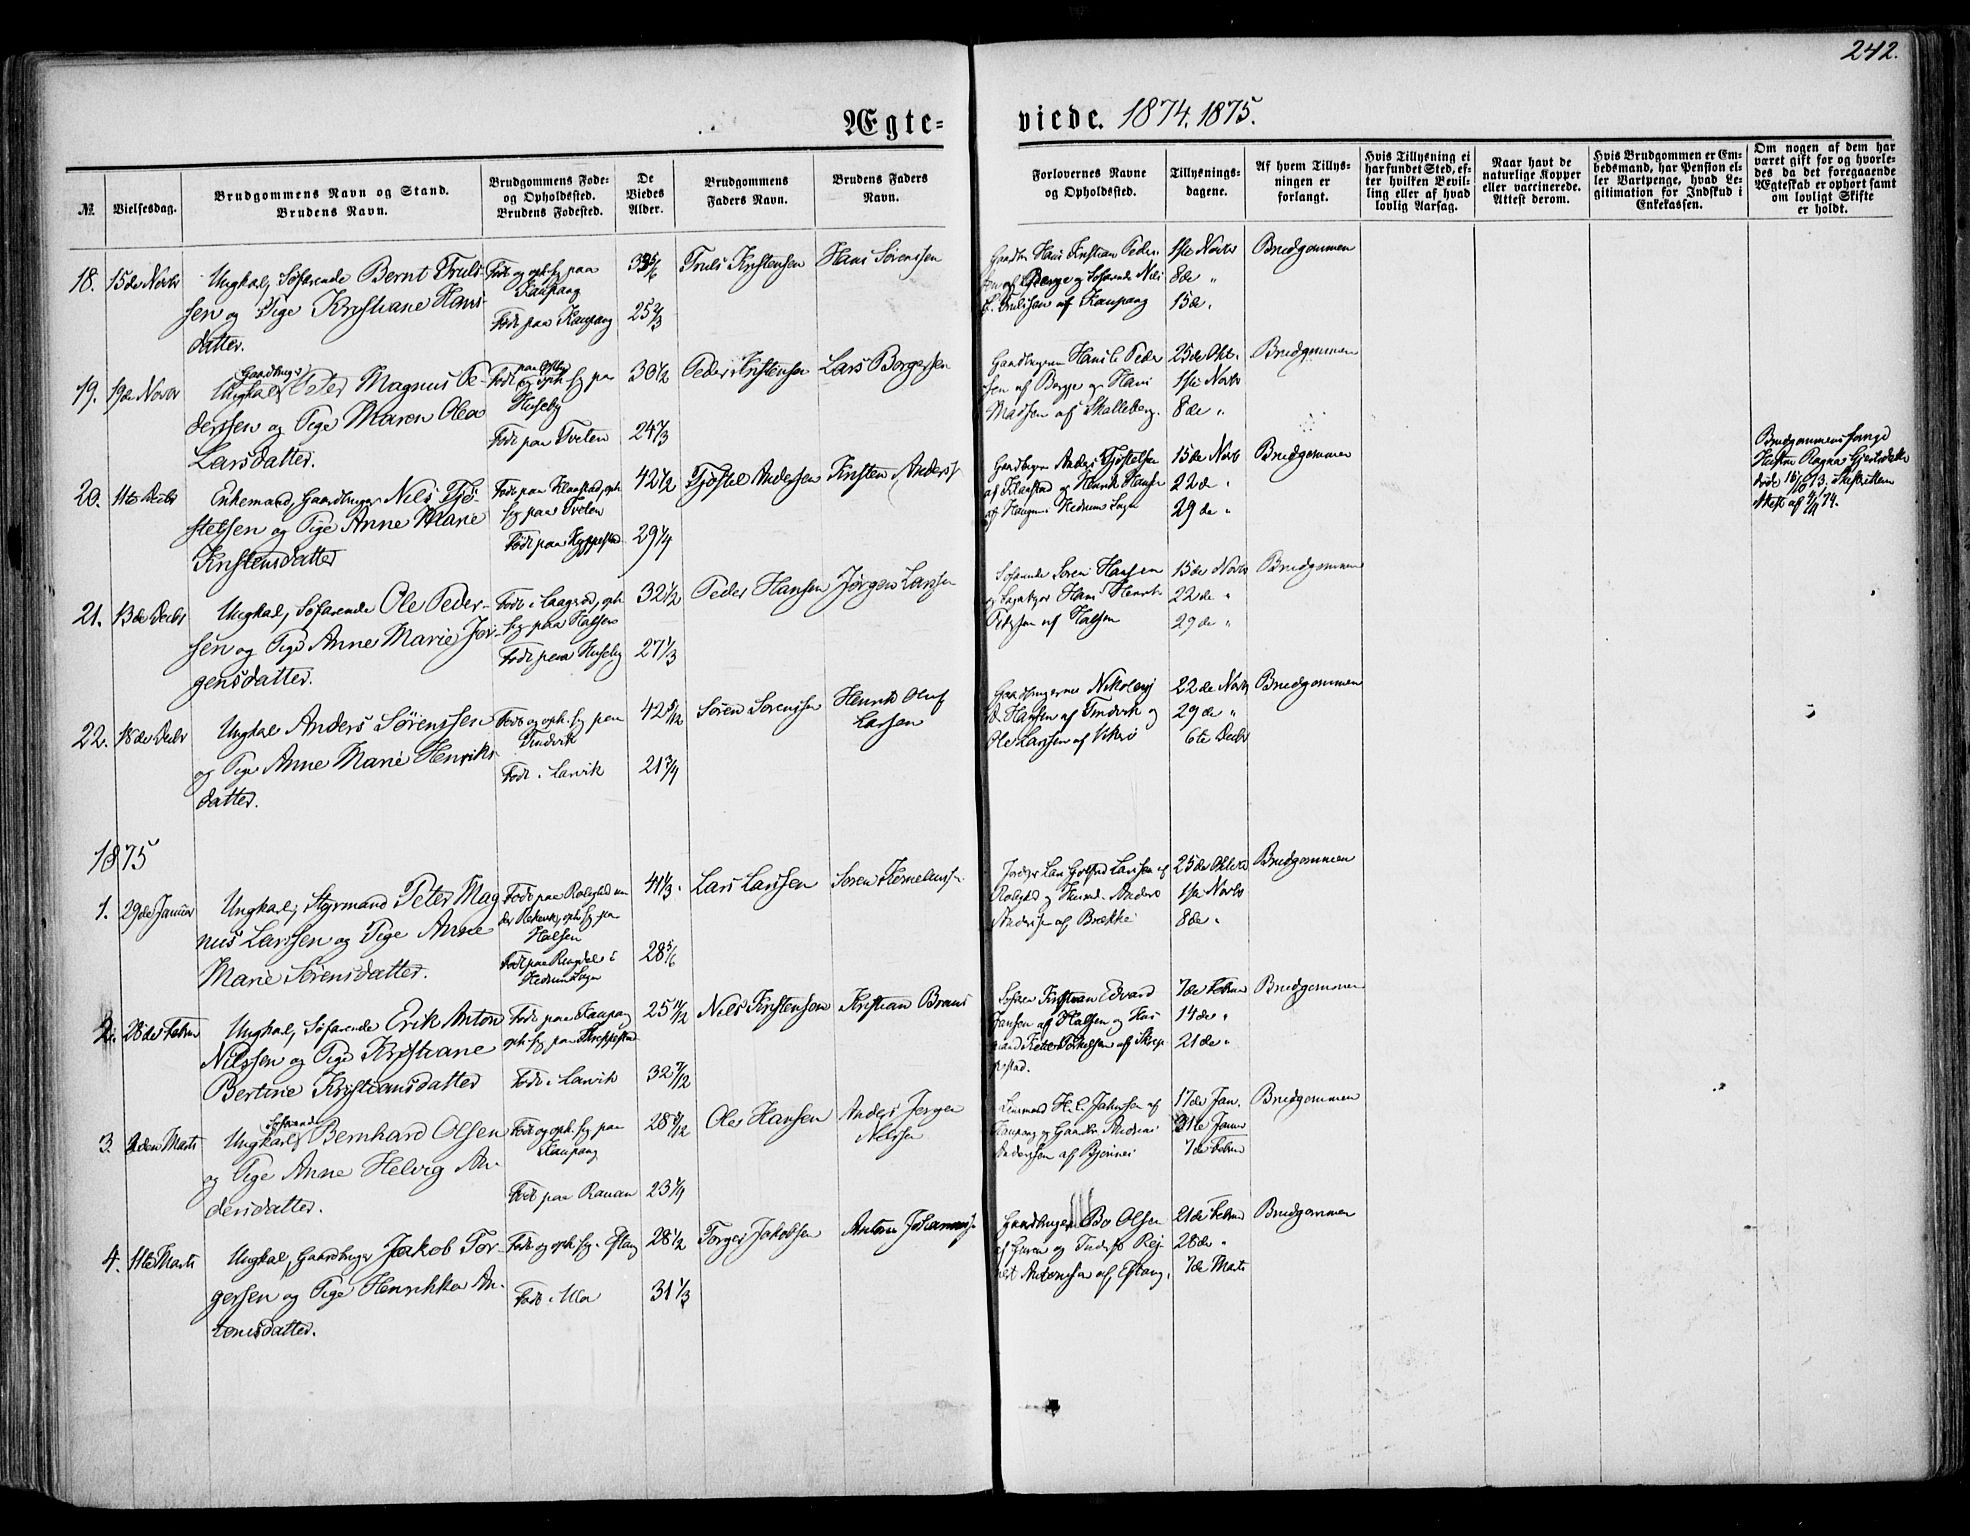 242.
Ægte= viede. 1874. 1875.
№
Vielsesdag.
Brudgommens Navn og Stand.
Brudens Navn.
Brudgommens Føde-
og Opholdssted.
Brudens Fødested.
De
Viedes
Alder.
Brudgommens
Faders Navn.
Brudens Faders
Navn.
Forlovernes Navne
og Opholdssted.
Tillysnings-
dagene.
Af hvem Tillys-
ningen er
forlangt.
Hvis Tillysning ei
har fundet Sted, ef-
ter hvilken Bevil-
ling eller af hvad
lovlig Aarsag.
Naar havt de
naturlige Kopper
eller vaccinerede.
Attest derom.
Hvis Brudgommen er Em-
bedsmand, har Pension el-
ler Vartpenge, hvad Le-
gitimation for Indskud i
Enkekassen.
Om nogen af dem har
været gift før og hvorle-
des da det foregaaende
Ægteskab er ophørt samt
om lovligt Skifte
er holdt.
18. 15de Novbr
Ungkal, Søfarende Bernt Truls-
sen og Pige Kristiane Hans
datter.
Født og oph. sig paa
Kaupang
Født paa Kaupang
25 2/3
Truls Kristensen
Hans Sørensen
Gaardbr Hans Kristian Peder
sen af Berge og Søfarende Nils
Trulssen af Kaupang
1ste Novbr
8de "
15de "
Brudgommen
19. 19de Novbr
Gaardbruger
Ungkal Peter Magnus Pe-
derssen og Pige Maren Olea
Larsdatter.
Født og oph. sig paa
Huseby
Født paa Tveten
30 1/2
24 1/3
Peder Kristensen
Lars Borgersen
Gaardbrugerne Hans L Peder
sen af Bergje og Hans
Madsen af Skalleberg.
25de Okt.
1ste Novbr
8de "
Brudgommen
20. 11te Decbr
Enkemand, Gaardbruger Nils Tjø-
stelsen og Pige Anne Marie
Kristensdatter
Født paa Klaastad, oph
sig paa Tveten
42 1/2
29 1/4
Tjøstel Andersen
Kristen Anders
Gaardbruger Anders Tjøstelsen
af Klaastad og Henrik Hansen
af Haugen i Hedrum Sogn
15de Novbr
22de "
29de "
Brudgommen
Brudgommens forrige
Hustru Ragna Gjertsdatter
døde
21. 13de Decbr
Ungkal, Søfarende Ole Peder-
sen og Pige Anne Marie Jør-
gensdatter.
Født i Laagerød, oph
sig paa Halsen
Født paa Huseby
32 1/2
27 1/3
Peder Hansen
Jørgen Larsen
Søfarende Søren Hansen
og Hans Henrik
Pedersen af Halsen
15de Novbr
22de "
29de "
Brudgommen
22. 18de Decbr
Ungkal Anders Sørenssen
og Pige Anne Marie Henriks
datter.
Født og oph. sig paa
Tindvik
Født i Larvik
42 5/12
21 3/4
Søren Sørenssen
Henrik Oluf
Larsen
Gaardbrugerne Nikolaj
Hansen af Tindvik og
Ole Larssen af Vikerø
22de Novbr
29de "
6te Decbr
Brudgommen
1875
1. 29de Januar
Ungkarl, Styrmand Peter Mag
nus Larssen og Pige Anne
Marie Sørensdatter.
Født paa Rolighed un
der Rekkevik, oph. sig paa
Halsen
Født paa Ringdal i
Hedrum Sogn
41 1/3
28 5/6
Lars Larssen
Søren Kornelinssen
Larssen af
Rolighed og Anders
Anderssen af Brække
25de Oktober
1ste Novbr
8de "
Brudgommen
2. 28de Febru
Ungkal, Søfarende Erik Anton
Nilssen og Pige Kristiane
Bertine Kristiansdatter
Født paa Kaupang
oph. sig paa Skreppestad
Født i Larvik
25 11/12
32 7/12
Nils Kristensen
Kristian Braus
Kristian Edvard
Jansen af Halsen og Hus
mand af Skrep
pestad.
7de Febru
14de "
21de "
Brudgommen
3. 2den Marts
Søfarende
Ungkarl Bernhard Olsen
og Pige Anne Helvig An-
dersdatter.
Født og oph. sig paa
Kaupang
Født paa Rauan
28 5/12
23 1/4
Ole Hansen
Anders Jørgen
Nilssen
Lensmand H. C. Jahnsen af
Kaupang og Gaardbr Andreas
Anderssen af Bjønnes
17de Jan.
31te Januar
7de Febru
Brudgommen
4. 11te Marts
Ungkal, Gaardbruger Jakob Tor-
gersen og Pige Henrikka An-
tonisdatter.
Født og oph. sig i Eftang
Født i Ula
28 1/2
31 1/3
Torger Jakobsen
Anton Johannessen
Gaardbruger Bo Olsen
af Guren og
Antonissen af Eftang.
21de Febru
28de "
7de Marts
Brudgommen